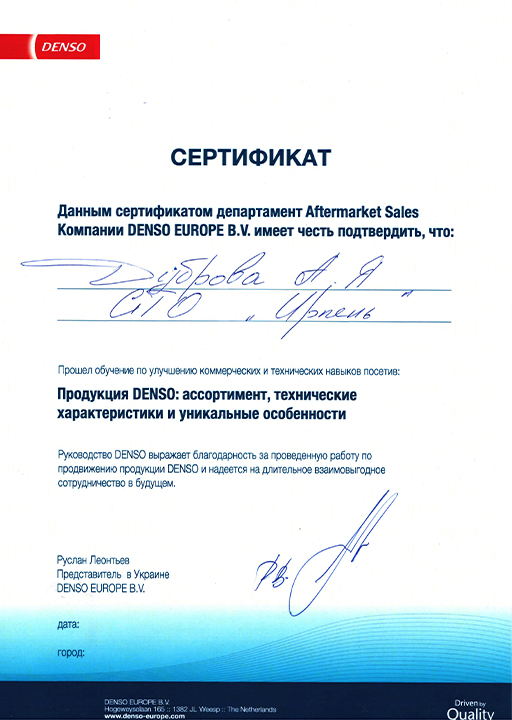 DENSO
СЕРТИФИКАТ
Данным сертификатом департамент Aftermarket Sales
Компании DENSO EUROPE B.V. имеет честь подтвердить, что:
Дуброва А. Я
СТО „Ирпень“
Прошел обучение по улучшению коммерческих и технических навыков посетив:
Продукция DENSO: ассортимент, технические
характеристики и уникальные особенности
Руководство DENSO выражает благодарность за проведенную работу по
продвижению продукции DENSO и надеется на длительное взаимовыгодное
сотрудничество в будущем.
Руслан Леонтьев
Представитель в Украине
DENSO EUROPE B.V.
дата:
город:
DENSO EUROPE B.V.
Hogeweyselaan 165 :: 1382 JL Weesp :: The Netherlands
www.denso-europe.com
Driven by
Quality